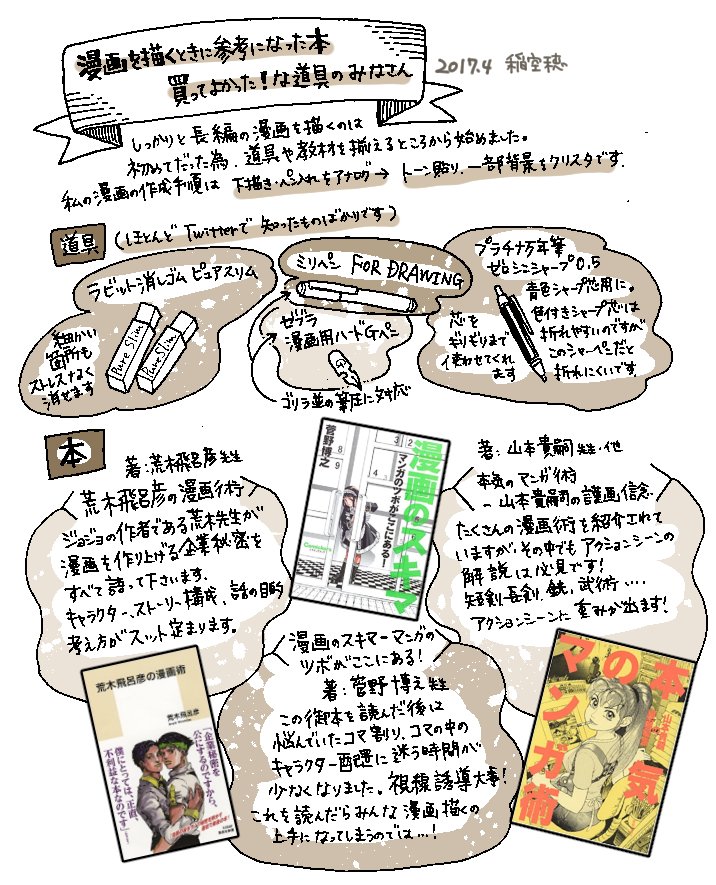 漫画を描くときに参考になった本
買ってよかった!な道具のみなさん
2017.4 稲空穂
しっかりと長編の漫画を描くのは
初めてだった為、道具や教材を揃えるところから始めました。
私の漫画の作成手順は 下描き・ペン入れをアナログ→トーン貼り、一部背景をクリスタです。
道具
(ほとんどTwitterで知ったものばかりです)
ラビット消しゴム ピュアスリム
細かい
箇所も
ストレスなく
消せます
Pure Slim
Pure Slim
ミリペン FOR DRAWING
ゼブラ
漫画用ハードGペン
ゴリラ並の筆圧に対応
プラチナ万年筆
ゼロシンシャープ0.5
青色シャープ芯用に。
色付きシャープ芯は
折れやすいのですが
このシャーペンだと
折れにくいです
芯を
ギリギリまで
使わせてくれ
ます
本
著:荒木飛呂彦先生
荒木飛呂彦の漫画術
ジョジョの作者である荒木先生が
漫画を作り上げる企業秘密を
すべて語って下さいます。
キャラクター、ストーリー構成、話の目的
考え方がスッと定まります。
荒木飛呂彦の漫画術
荒木飛呂彦
「企業秘密を
公にするのですから、
僕にとっては、正直、
不利益な本なのです」
菅野博之
漫画のスキマ
マンガのツボがここにある!
漫画のスキマーマンガの
ツボがここにある!
著:菅野博之先生
この御本を読んだ後は
悩んでいたコマ割り、コマの中の
キャラクター配置に迷う時間が
少なくなりました。視線誘導大事!
これを読んだらみんな漫画描くの
上手になってしまうのでは…!
著:山本貴嗣先生・他
本気のマンガ術
-山本貴嗣の謹画信念-
たくさんの漫画術を紹介されて
いますが、その中でもアクションシーンの
解説は必見です!
短剣・長剣、銃、武術・・・・
アクションシーンに重みが出ます!
本気の
マンガ術
山本貴嗣